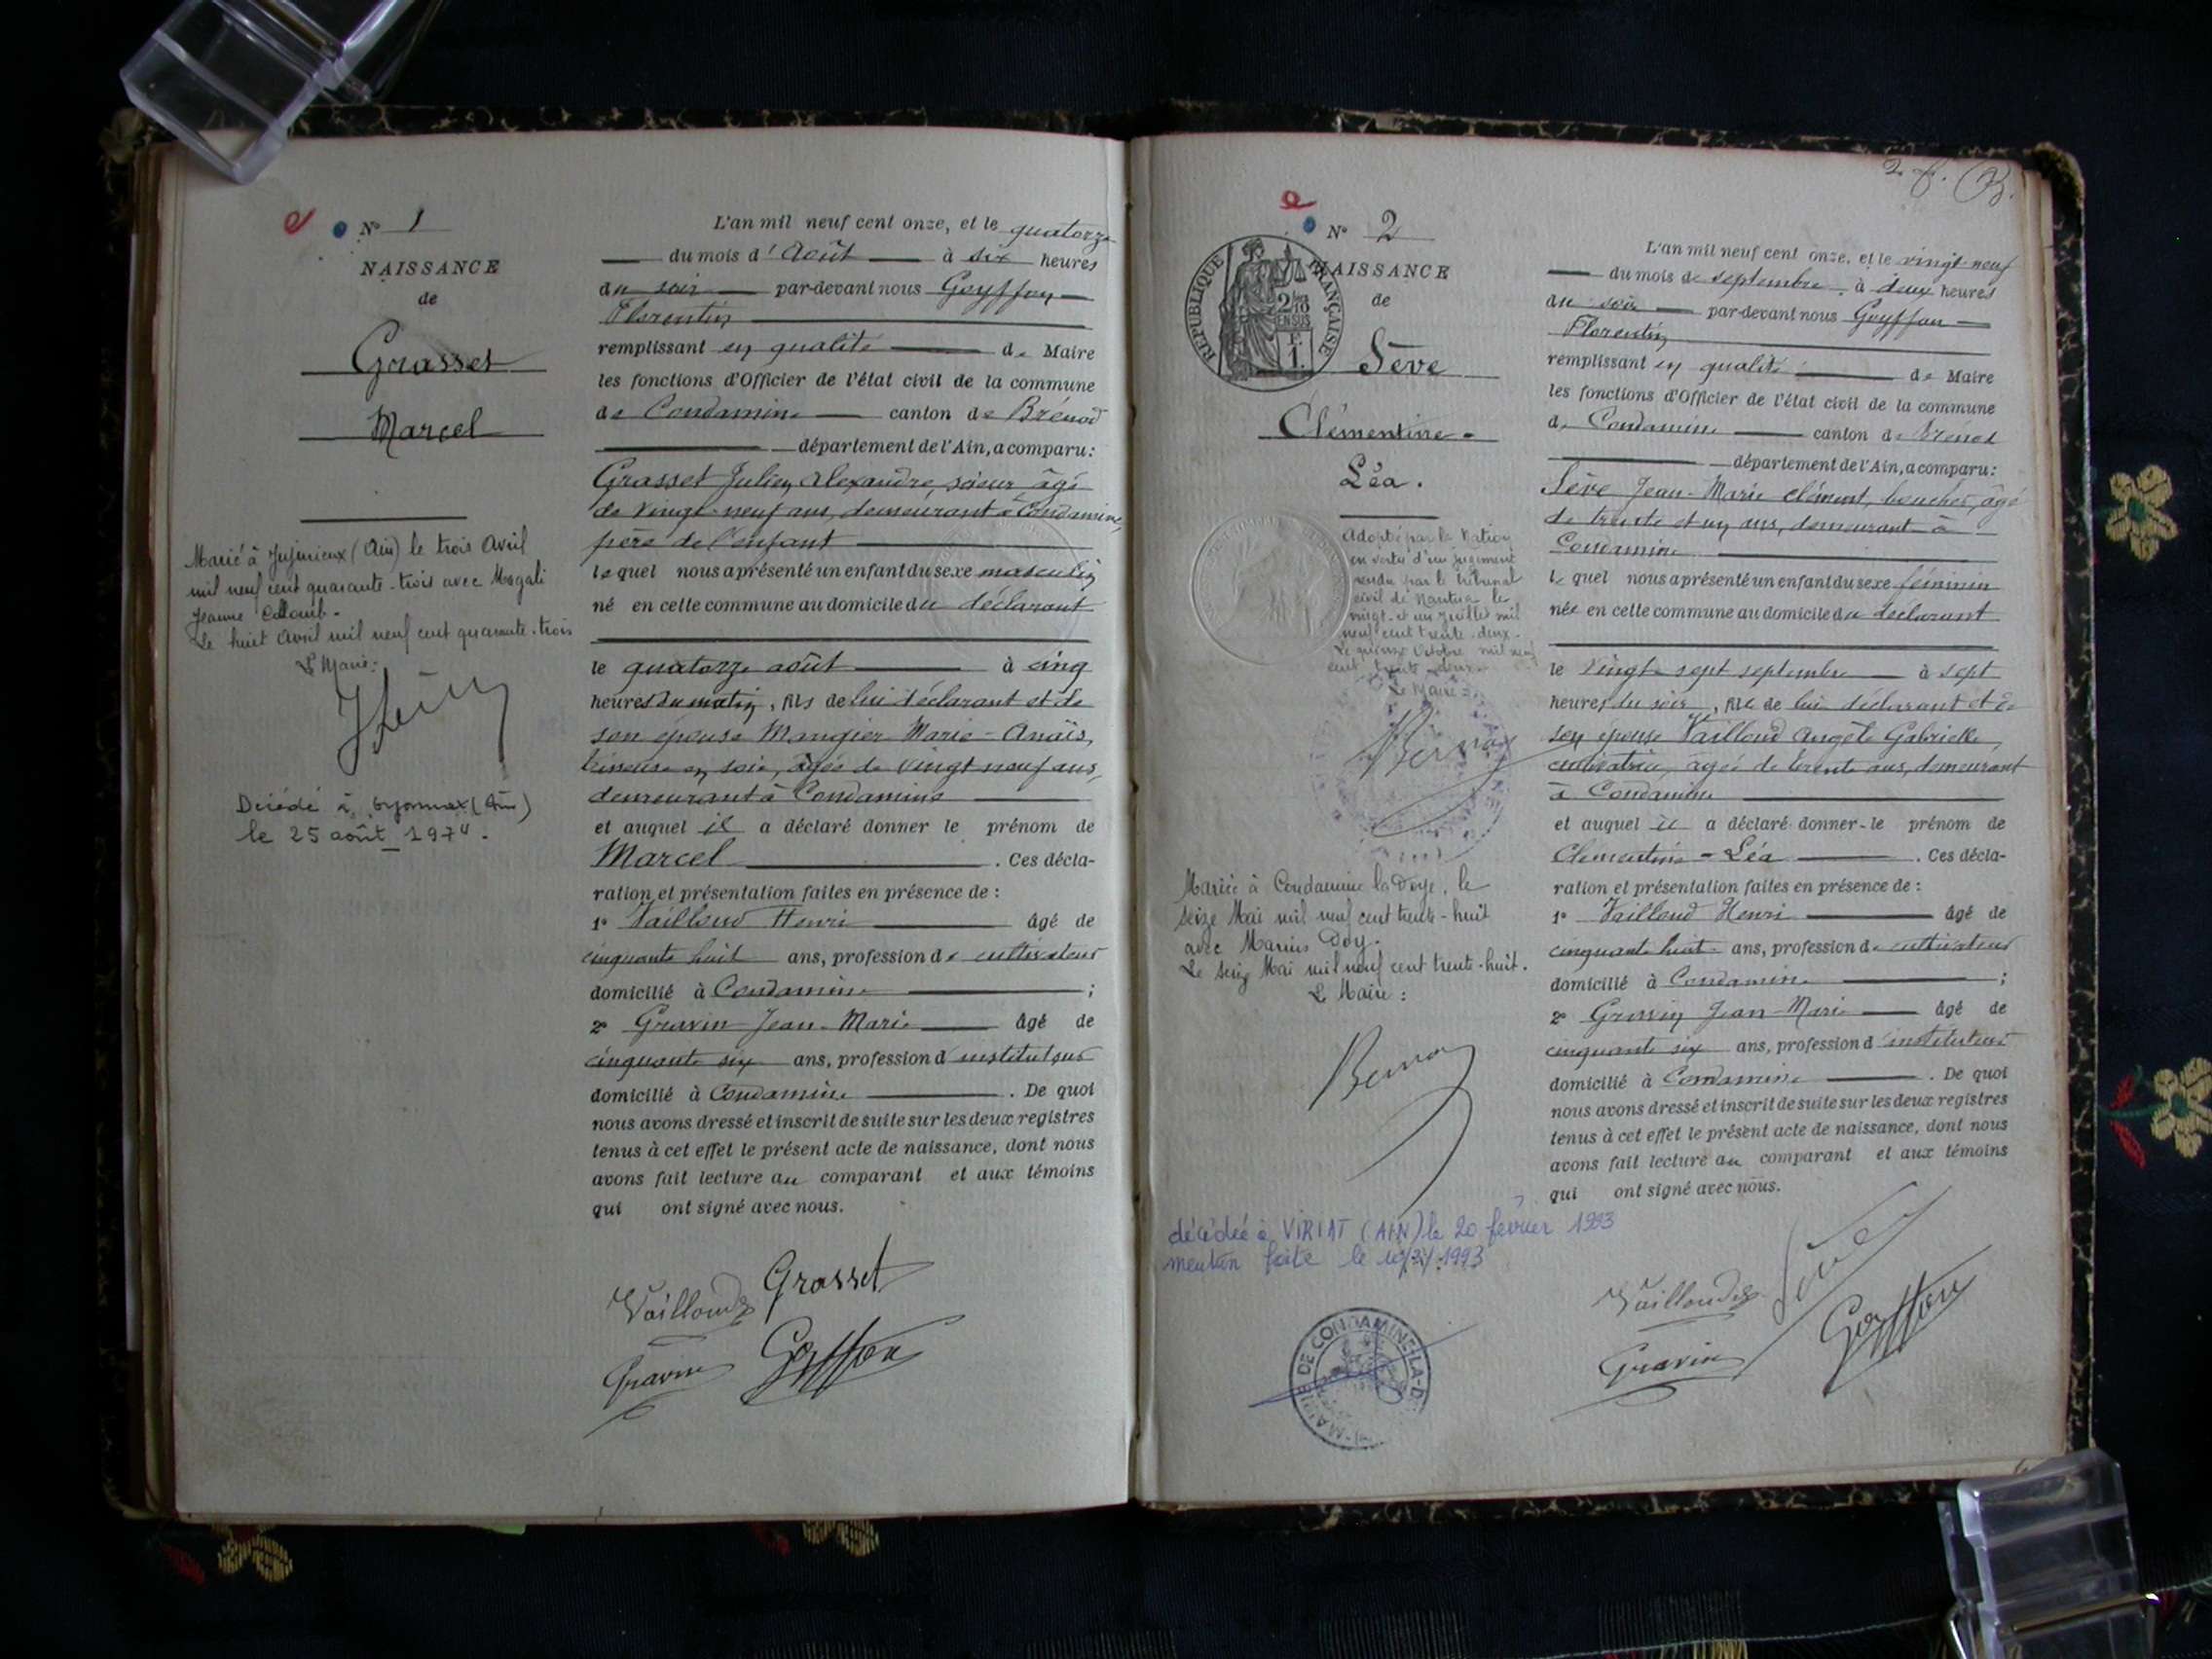 N° 1
NAISSANCE
de
Grasset
Marcel
Marié à Jujurieux (Ain) le trois Avril
mil neuf cent quarante-trois avec Magali
Jeanne Collomb.
Le huit Avril mil neuf cent quarante-trois
Le Maire:
Décédé à Oyonnax (Ain)
le 25 août 1974.
L'an mil neuf cent onze, et le quatorze
du mois d'Août à six heures
du soir par-devant nous Goyffon
Florentin
remplissant en qualité de Maire
les fonctions d'Officier de l'état civil de la commune
de Condamine canton de Brénod
département de l'Ain, a comparu:
Grasset Julien Alexandre, scieur âgé
de vingt-neuf ans, demeurant à Condamine,
père de l'enfant
lequel nous a présenté un enfant du sexe masculin
né en cette commune au domicile du déclarant
le quatorze août à cinq
heures du matin, fils de lui déclarant et de
son épouse Mangier Marie-Anaïs,
en soie, âgée de vingt neuf ans,
demeurant à Condamine
et auquel il a déclaré donner le prénom de
Marcel. Ces décla-
ration et présentation faites en présence de :
1° Vailloud Henri âgé de
cinquante huit ans, profession de cultivateur
domicilié à Condamine ;
2° Gravin Jean-Marie âgé de
cinquante six ans, profession d'instituteur
domicilié à Condamine. De quoi
nous avons dressé et inscrit de suite sur les deux registres
tenus à cet effet le présent acte de naissance, dont nous
avons fait lecture au comparant et aux témoins
qui ont signé avec nous.
Vailloud Grasset
Gravin Goyffon
2 f.
N° 2
RÉPUBLIQUE FRANÇAISE
2/10 EN SUS
F. 1.
NAISSANCE
de
Sève
Clémentine-
Léa.
Adoptée par la Nation
en vertu d'un jugement
rendu par le tribunal
civil de Nantua le
vingt-et un juillet mil
neuf cent trente-deux.
Le quinze Octobre mil neuf
cent trente deux.
Le Maire:
Mariée à Condamine la Doye, le
seize Mai mil neuf cent trente-huit
avec Marius Doy.
Le seize Mai mil neuf cent trente-huit.
Le Maire :
décédée à VIRIAT (AIN) le 20 février 1993
mention faite le 1993
MAIRIE DE CONDAMINE-LA-D
L'an mil neuf cent onze, et le vingt-neuf
du mois de septembre, à deux heures
du soir par-devant nous Goyffon
Florentin
remplissant en qualité de Maire
les fonctions d'Officier de l'état civil de la commune
de Condamine canton de Brénod
département de l'Ain, a comparu:
Sève Jean-Marie Clément, boucher, âgé
de trente et un ans, demeurant à
Condamine
lequel nous a présenté un enfant du sexe féminin
née en cette commune au domicile du déclarant
le vingt-sept septembre à sept
heures du soir, fille de lui déclarant et de
son épouse Vailloud Angèle Gabrielle,
cultivatrice, âgée de trente ans, demeurant
à Condamine
et auquel il a déclaré donner le prénom de
Clémentine-Léa. Ces décla-
ration et présentation faites en présence de :
1° Vailloud Henri âgé de
cinquante huit ans, profession de cultivateur
domicilié à Condamine ;
2° Gravin Jean-Marie âgé de
cinquante six ans, profession d'instituteur
domicilié à Condamine. De quoi
nous avons dressé et inscrit de suite sur les deux registres
tenus à cet effet le présent acte de naissance, dont nous
avons fait lecture au comparant et aux témoins
qui ont signé avec nous.
Vailloud Sève
Gravin Goyffon